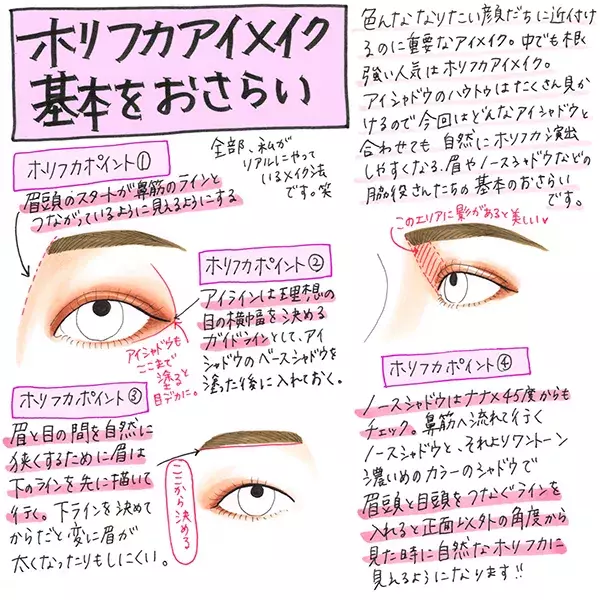 ホリフカアイメイク
基本をおさらい
全部、私が
リアルにやって
いるメイク法
です。笑
色んななりたい顔だちに近付け
るのに重要なアイメイク。中でも根
強い人気はホリフカアイメイク。
アイシャドウのハウトゥはたくさん見か
けるので今回はどんなアイシャドウと
合わせても自然にホリフカ演出
しやすくなる、眉やノースシャドウなどの
脇役さんたちの基本のおさらい
です。
ホリフカポイント①
眉頭のスタートが鼻筋のラインと
つながっているように見えるようにする
ホリフカポイント②
アイラインは理想の
目の横幅を決める
ガイドラインとして、アイ
シャドウのベースシャドウを
塗った後に入れておく。
アイシャドウも
ここまで
塗ると
目デカに。
ホリフカポイント③
眉と目の間を自然に
狭くするために眉は
下のラインを先に描いて
行く。下ラインを決めて
からだと変に眉が
太くなったりもしにくい。
ここから決める
このエリアに影があると美しい♥
ホリフカポイント④
ノースシャドウはナナメ45度からも
チェック。鼻筋へ流れて行く
ノースシャドウと、それよりワントーン
濃いめのカラーのシャドウで
眉頭と目頭をつなぐラインを
入れると正面以外の角度から
見た時に自然なホリフカに
見えるようになります!!